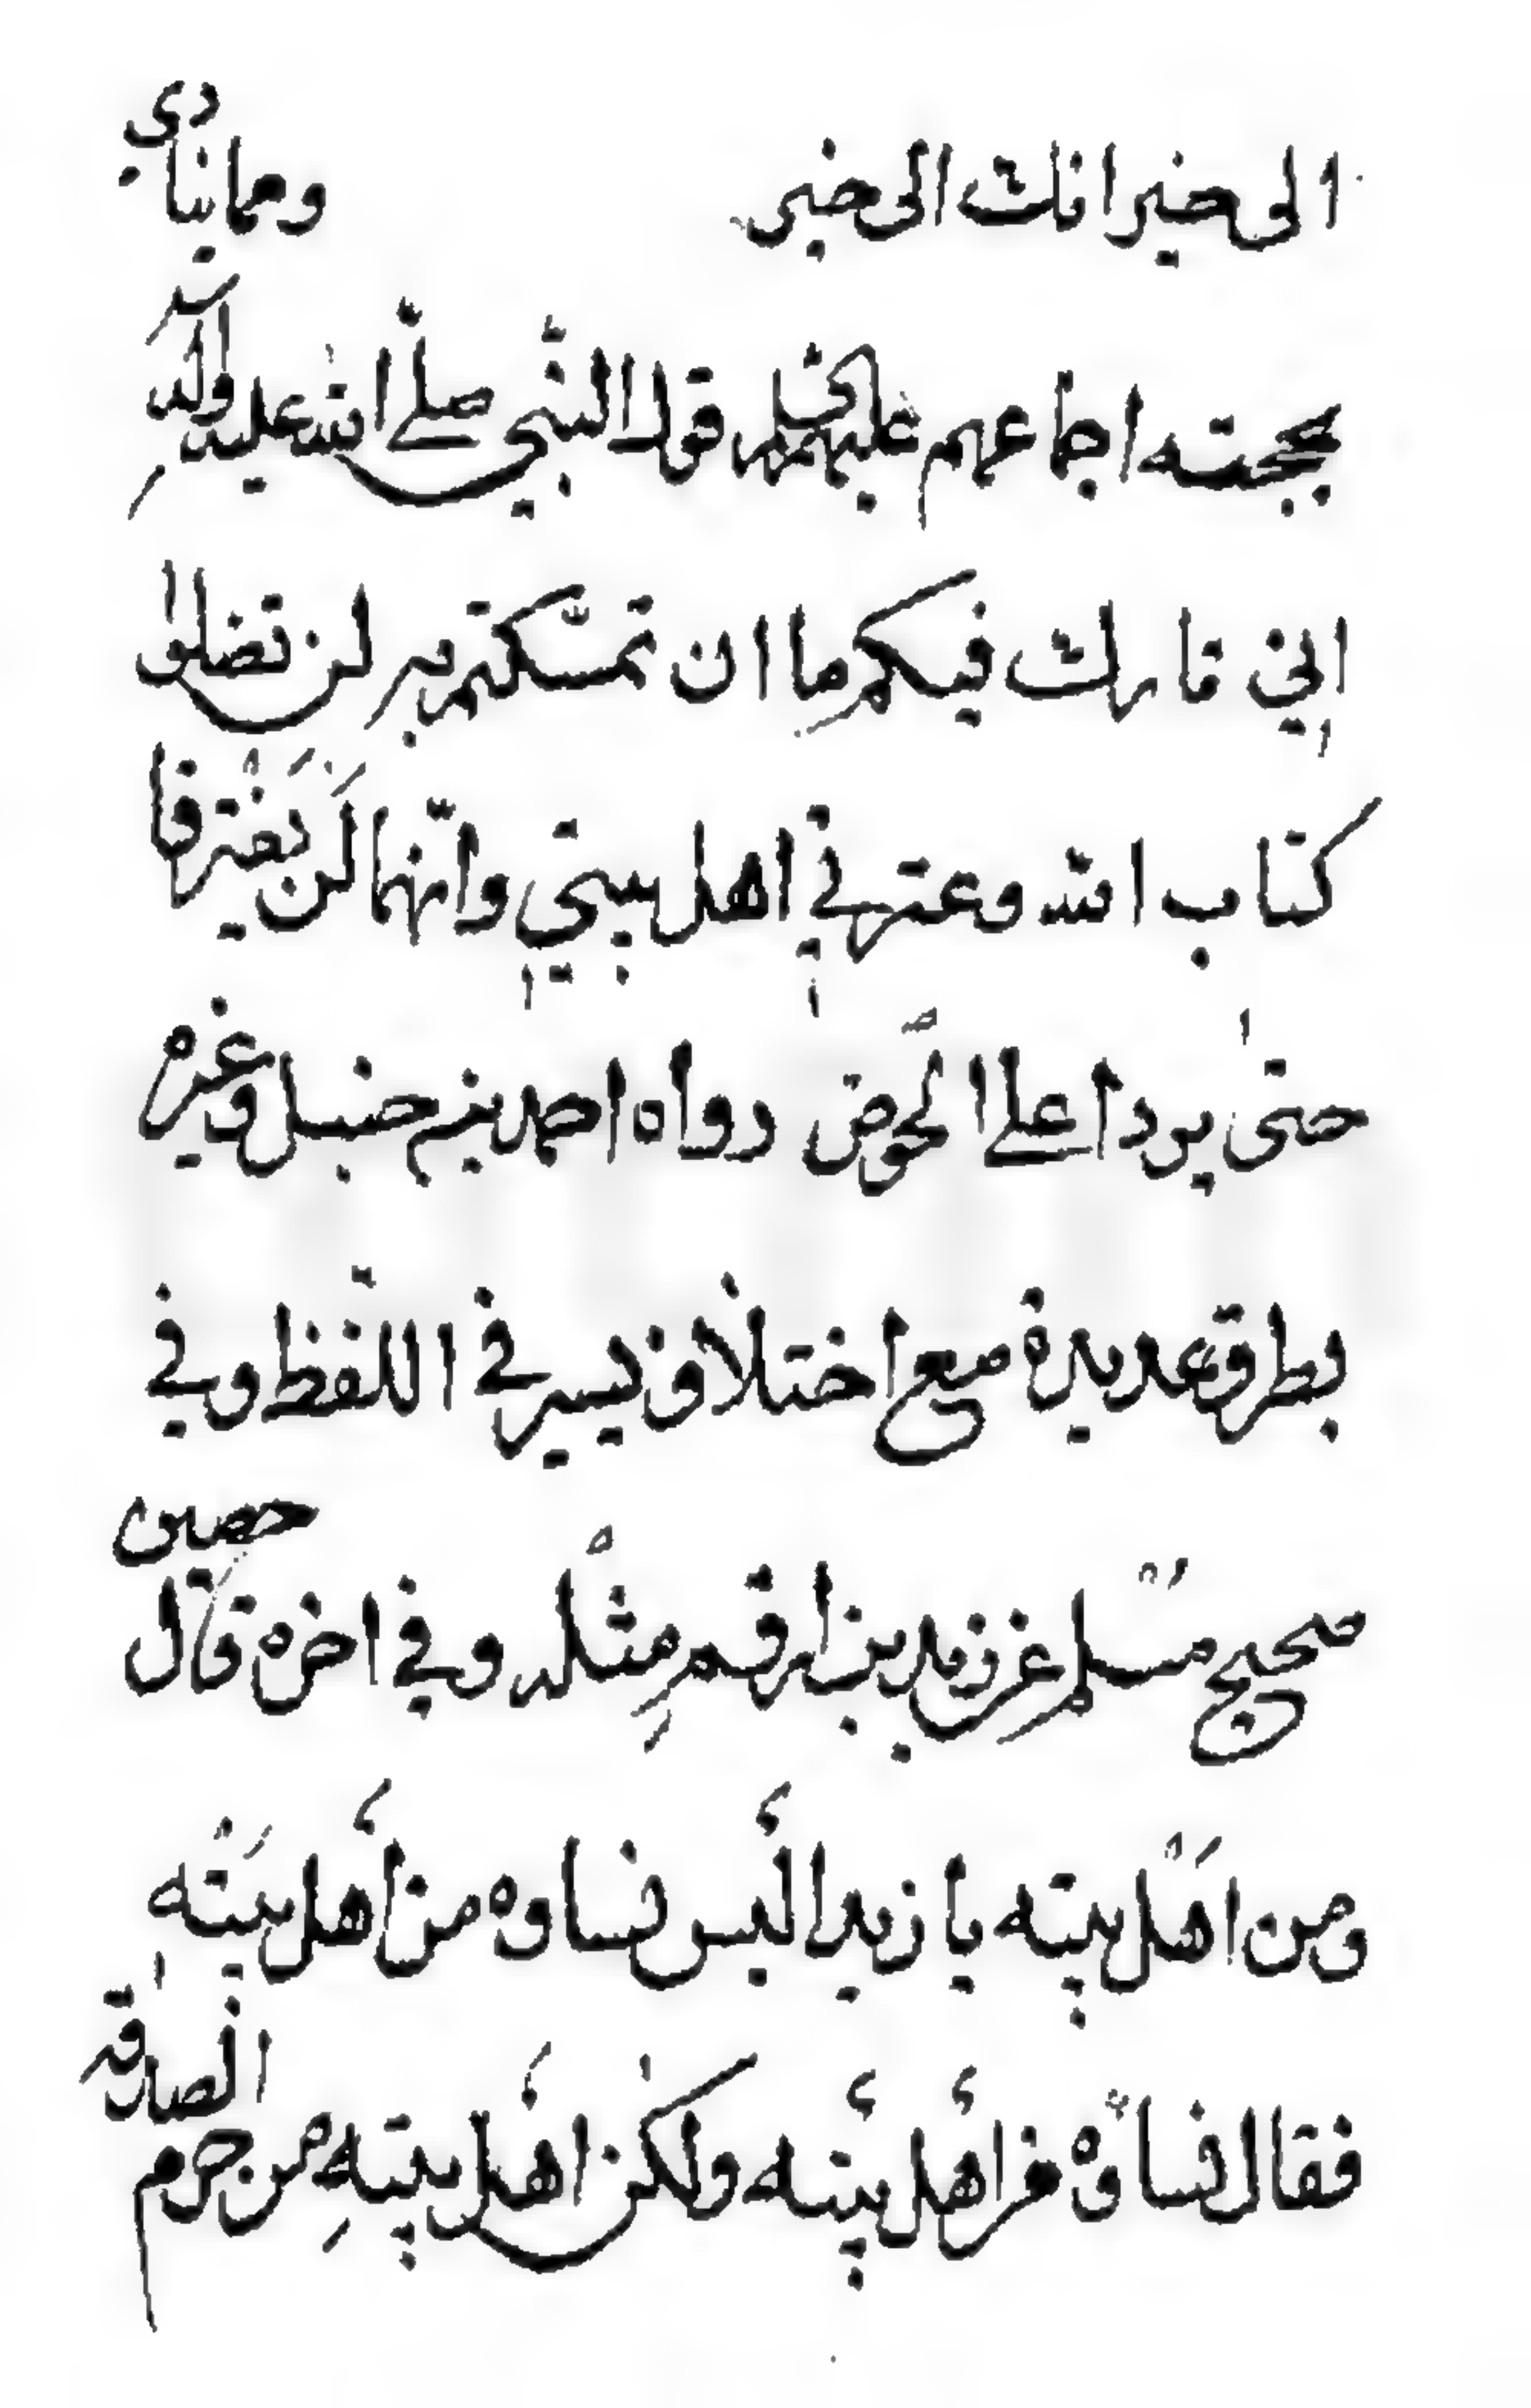 الى خير انك الى خير ومما ينادي
بحجته اجماعهم عليهم السلم قول النبي صلى الله عليه واله
اني تارك فيكم ما ان تمسّكتم به لن تضلوا
كتاب الله وعترتي اهل بيتي وانّهما لَن يَفْترقا
حتىٰ يردا على الحوض رواه احمد بن حنبل وغيره
بطرق عديدة مع اختلاف يسير في اللفظ وفي
صحيح مُسْلم عن زيد بن ارقم مِثْله وفي اخره قال حصين
ومن اهْل بيته يا زيد اليس نساوه من أهل بَيْته
فقال نساؤه من أهل بيته ولكن اهل بيتهِ من حرم الصدقه